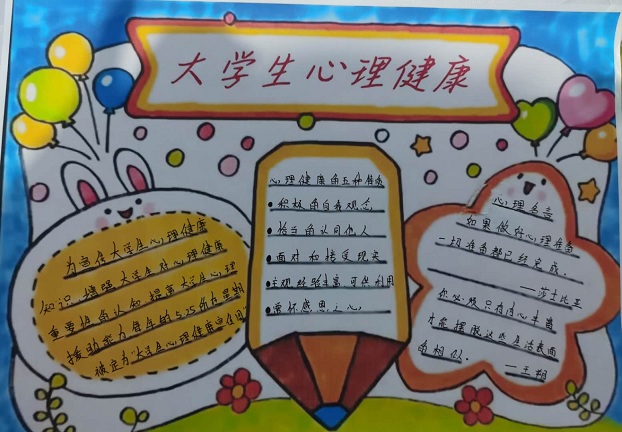 大学生心理健康
为宣传大学生心理健康
知识,增强大学生对心理健康
重要性的认知,提高大学生心理
援助能力每年的5.25的为星期
被定为"大学生心理健康
心理健康的五种
•积极的自我观念
•恰当的认同他人
•面对和接受现实
•主观经验丰富 可供利用
•
心理
如果做好心理准备
一切准备都已经完成.
——莎士比亚
你必须只有内心丰富
才能摆脱这些生活表面
的相似.
——王朔